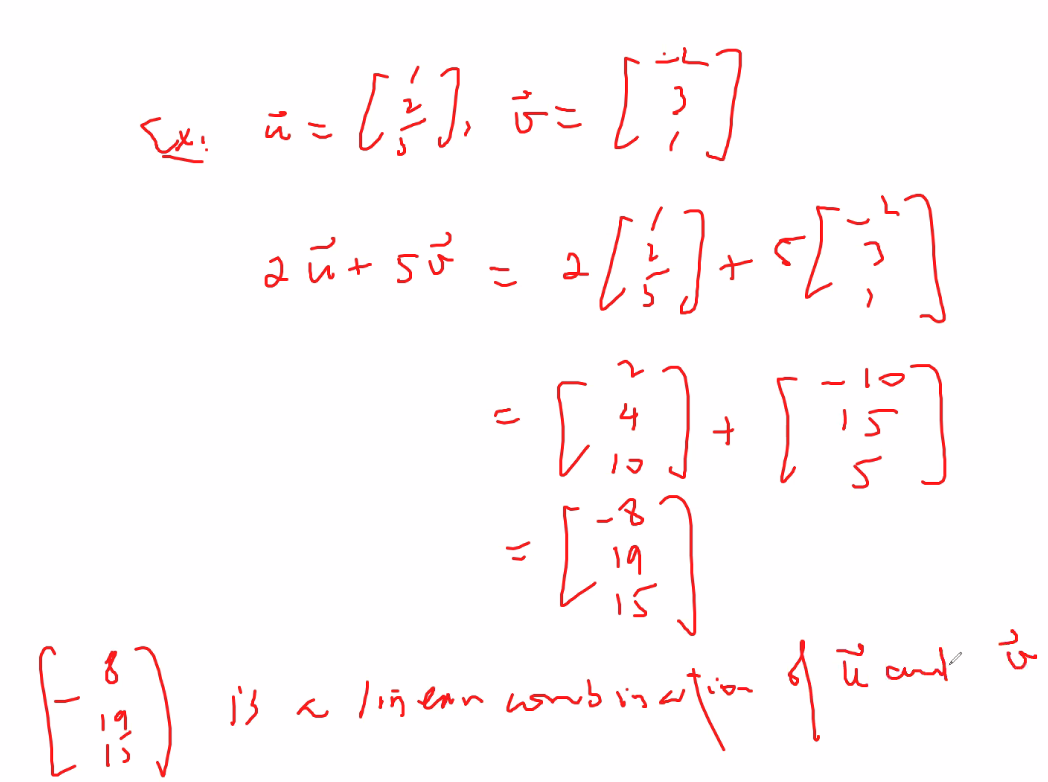 Ex: u⃗ = [1 2 5], v⃗ = [-2 3 1]
2u⃗ + 5v⃗ = 2[1 2 5] + 5[-2 3 1]
= [2 4 10] + [-10 15 5]
= [-8 19 15]
[-8 19 15] is a linear combination of u⃗ and v⃗